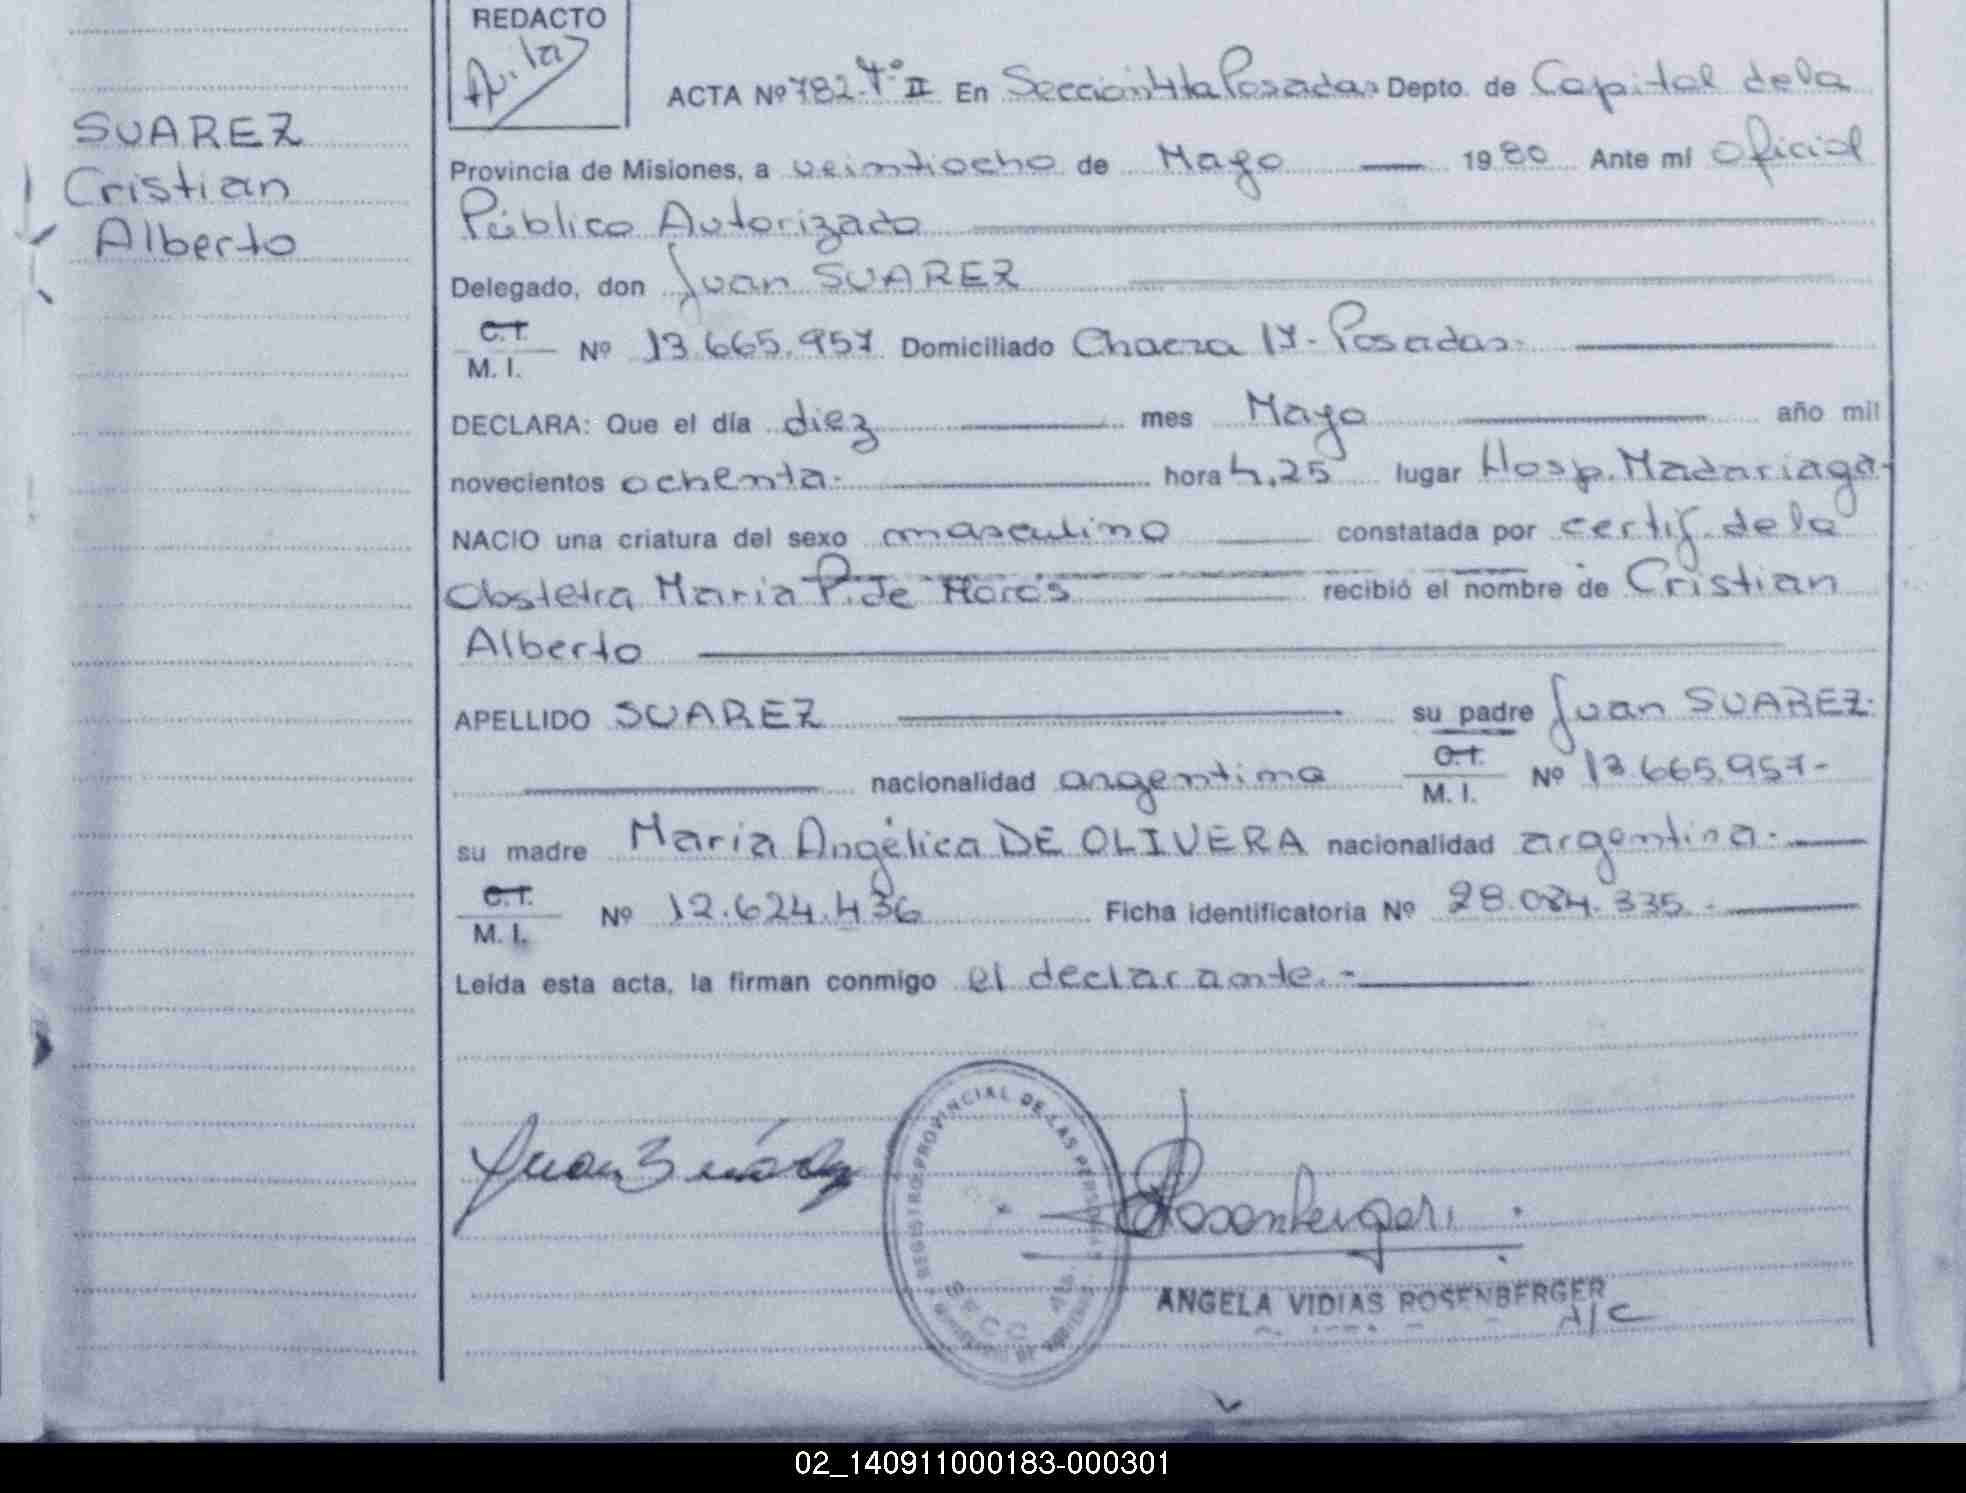 SUAREZ
Cristian
Alberto
REDACTO
ACTA Nº 782 Tº II En Sección 4ta Posadas Depto. de Capital de la
Provincia de Misiones, a veintiocho de Mayo 1980 Ante mí oficial
Público Autorizado
Delegado, don Juan SUAREZ
C.I.
M. I. Nº 13.665.957 Domiciliado Chacra 17- Posadas-
DECLARA: Que el día diez mes Mayo año mil
novecientos ochenta- hora 4,25 lugar Hosp. Madariaga-
NACIO una criatura del sexo masculino constatada por certif. de la
Obstetra María P. de recibió el nombre de Cristian
Alberto
APELLIDO SUAREZ su padre Juan SUAREZ-
nacionalidad argentina C.I. M. I. Nº 13.665.957-
su madre María Angélica DE OLIVERA nacionalidad argentina-
C.I.
M. I. Nº 12.624.436 Ficha identificatoria Nº 28.084.335-
Leída esta acta, la firman conmigo el declarante.-
Juan Suárez
REGISTRO PROVINCIAL DE LAS PERSONAS
SECC. 4ta.
Rosenberger
ANGELA VIDIAS ROSENBERGER
A/C
02_140911000183-000301